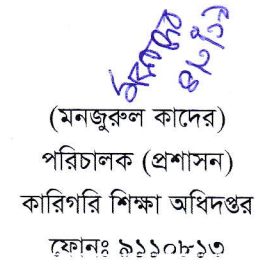 (মনজুরুল কাদের)
পরিচালক (প্রশাসন)
কারিগরি শিক্ষা অধিদপ্তর
ফোনঃ ৯১১০৮১৩